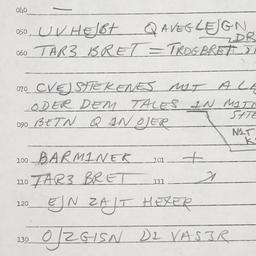 040 —
050 UVHEJBT QAVEGLEJGN
DR
060 TARZ BRET = TROGBRET
070 CVEJSTEKENES MIT A LA
080 ODER DEM TALES IN MIT
STE
090 BETN Q INOJER
MIT
K
100 BARMINEK 101 +
110 TARZ BRET 111
120 EJN ZAJT HEXER
130 OJZGISN DI VASER